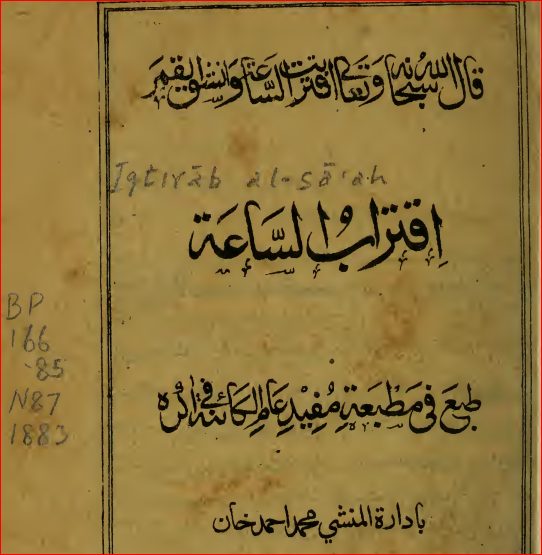 قال الله سبحانه وتعالى اقتربت الساعة وانشق القمر
Iqtirāb al-sāʿah
اِقْتِرَابُ السَّاعَة
BP
166
.85
N87
1883
طبع في مطبعة مفيد عام الكائنة في اگره
بادارة المنشي محمد احمد خان